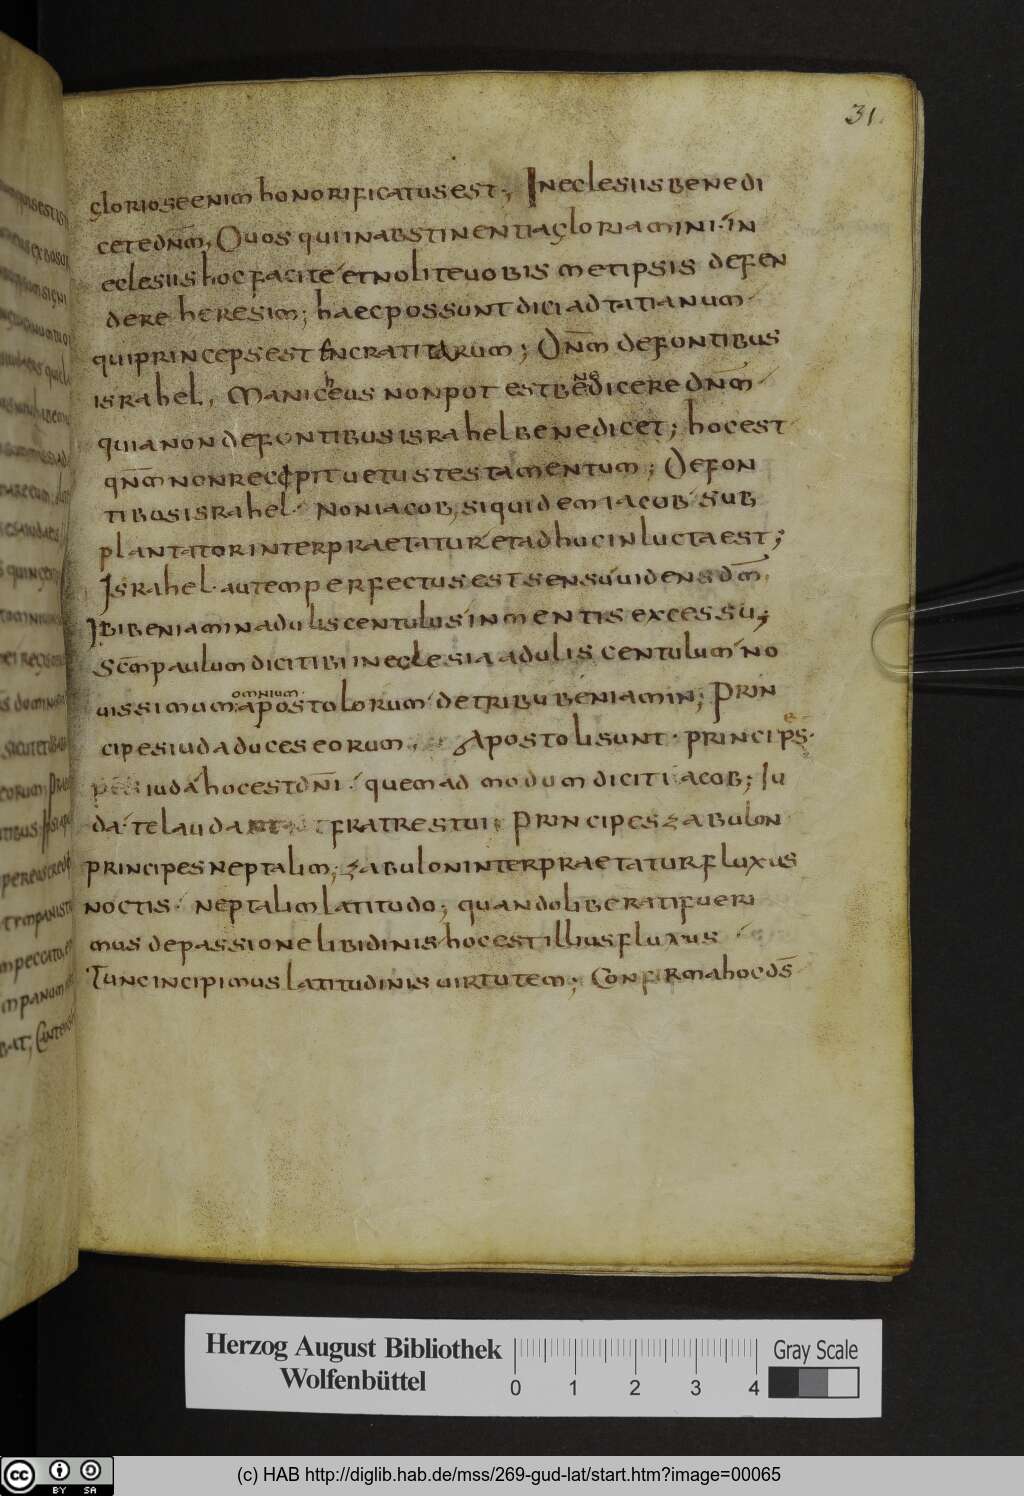 31.
gloriose enim honorificatus est; In eclesiis benedi
cete dn̄m, Quos qui in abstinentia gloriamini. in
eclesiis hoc facite et nolite uobis metipsis defen
dere heresim; haec possunt dici ad tatianum
qui princeps est encratitarum; Dn̄m de fontibus
israhel, Manicheus non potest benedicere dn̄m
quia non de fontibus israhel benedicet; hoc est
qn̄m non recepit uetus testamentum; De fon
tibus israhel. Non iacob, siquidem iacob sub
plantator interpraetatur et adhuc in lucta est;
Israhel. autem perfectus est sensu uidens dm̄,
Ibi beniamin adulis centulus in mentis excessu;
Scm̄ paulum dicit ibi in eclesia adulis centulum no
uissimum omnium apostolorum de tribu beniamin; Prin
cipes iuda duces eorum, Apostoli sunt. principes
iuda hoc est dn̄i. quemadmodum dicit iacob; Iu
da. te lauda fratres tui; Principes zabulon
principes neptalim; zabulon interpraetatur fluxus
noctis. neptalim latitudo; quando liberati fueri
mus de passione libidinis hoc est illius fluxus
Tunc incipimus latitudinis uirtutem; Confirma hoc ds̄
Herzog August Bibliothek
Wolfenbüttel
0 1 2 3 4
Gray Scale
cc BY SA
(c) HAB http://diglib.hab.de/mss/269-gud-lat/start.htm?image=00065